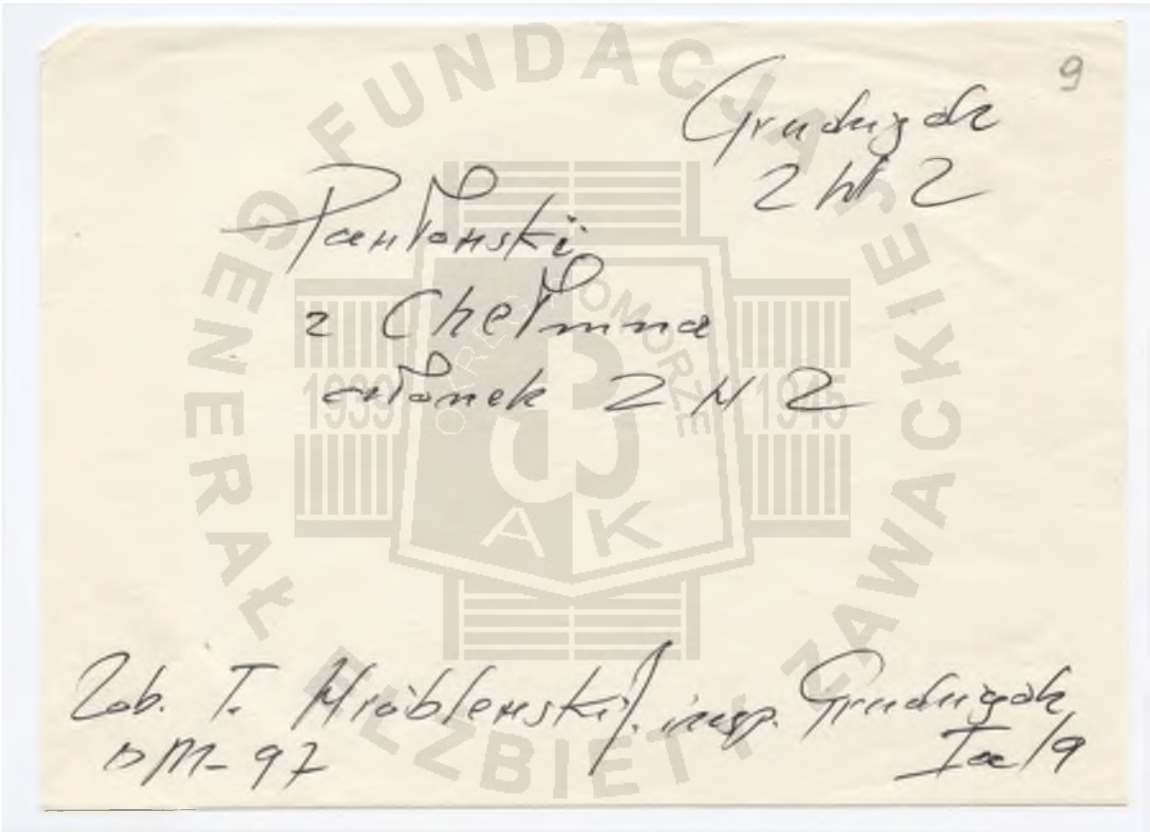 9
Grudziądz
ZWZ
Pawłowski
z Chełmna
członek ZWZ
Zob. T. Wróblewski J. insp. Grudziądz
Ia/9
DM-97
FUNDACJA
GENERAŁ ELŻBIETY ZAWACKIEJ
OKRĘG POMORZE
1939 1945
AK